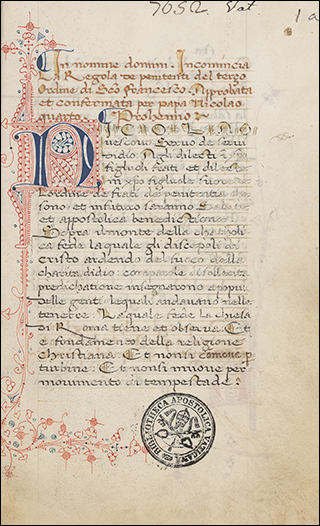 7052 Vat
1 a
In nomine domini. Incomincia
la Regola de penitenti del terço
ordine di Sco Francesco. Aprobata
et confermata per papa Nicolao
quarto. Prohemio
NICOLAO
uescouo Seruo de serui
didio. Agli dilecti i xpo
figluoli frati et dilecte
in xpo figluole suore
lordine de frati de penitenza che
sono et infuturo saranno Salute
et apostolica benedictione
Sopra il monte della chatholica
fede la quale gli discepoli di
cristo ardendo del fuoco della
charita didio: con parole di sollecita
predichatione insegnarono a popu
delle genti lequali andauano nelle
tenebre. La quale fede la chiesa
di Roma tiene et obserua. Et
e fondamento della religione
christiana. Et non si comoue p
turbine: Et non si muoue per
mouimento di tempestade:
BIBLIOTHECA APOSTOLICA VATICANA